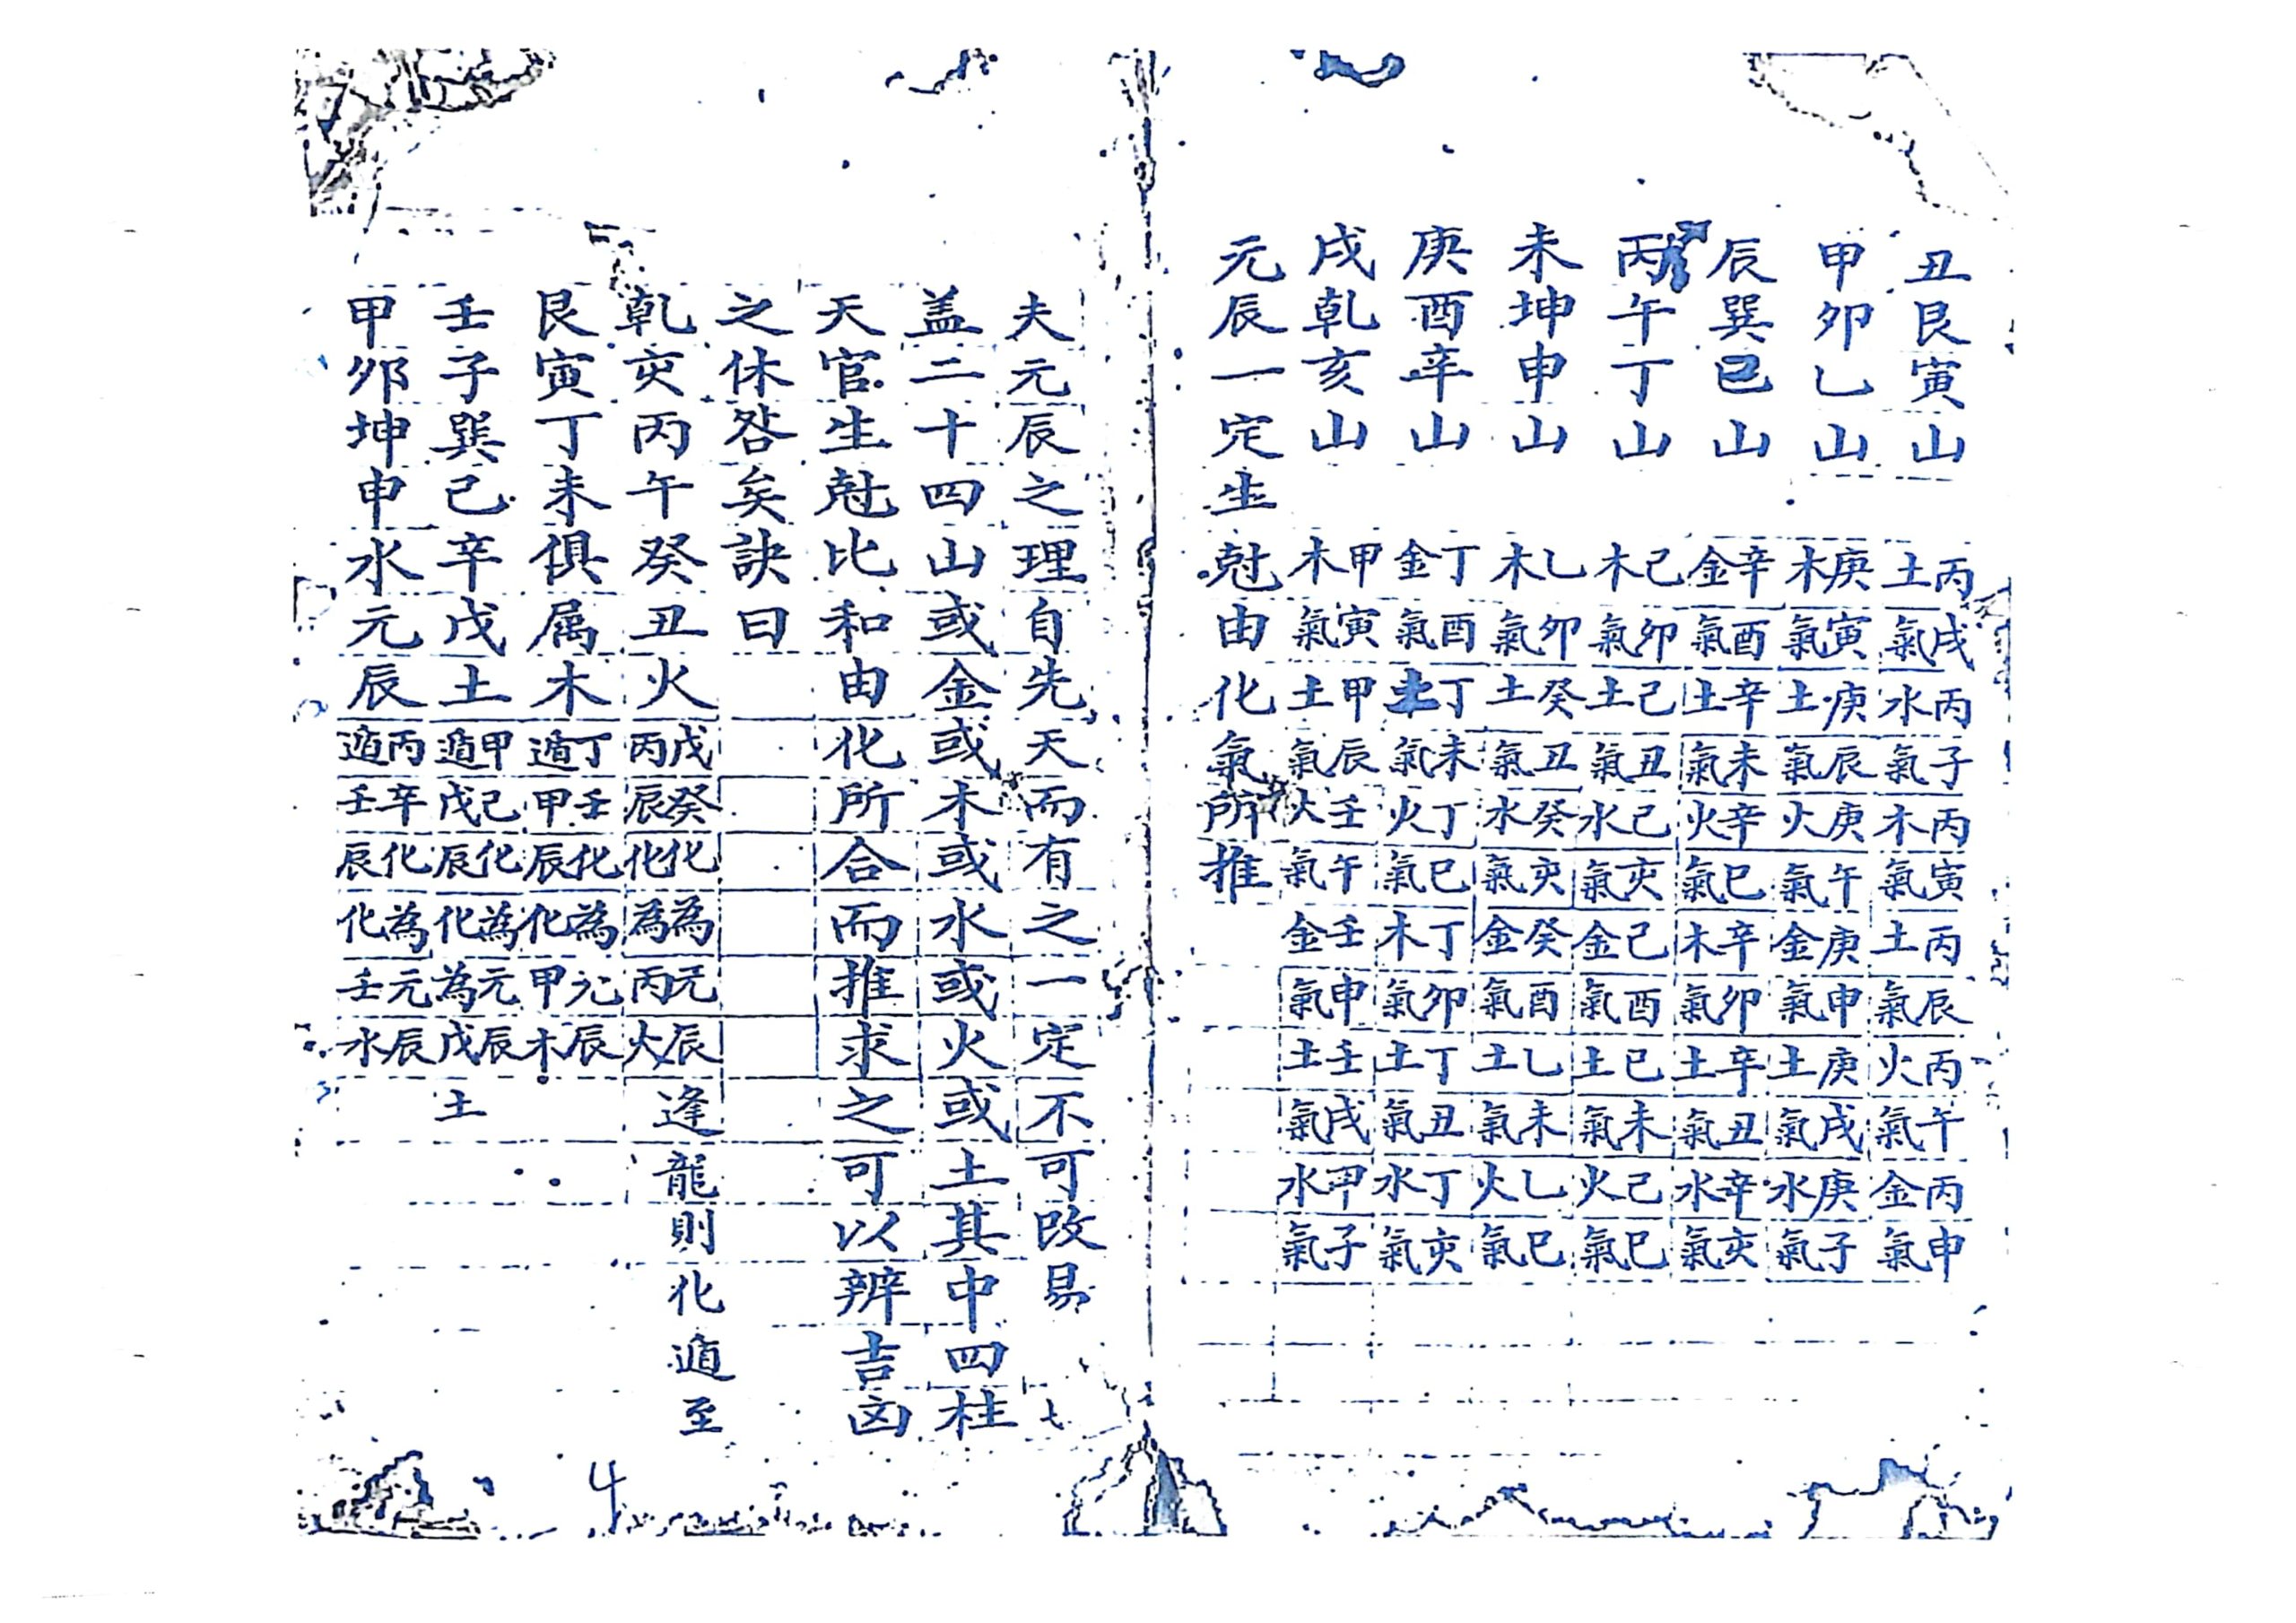 丑艮寅山 丙戌土氣 丙子水氣 丙寅木氣 丙辰土氣 丙午火氣 丙申金氣
甲卯乙山 庚寅木氣 庚辰土氣 庚午火氣 庚申金氣 庚戌土氣 庚子水氣
辰巽巳山 辛酉金氣 辛未土氣 辛巳火氣 辛卯木氣 辛丑土氣 辛亥水氣
丙午丁山 己卯木氣 己丑土氣 己亥水氣 己酉金氣 己未土氣 己巳火氣
未坤申山 乙卯木氣 癸丑土氣 癸亥水氣 癸酉金氣 乙未土氣 乙巳火氣
庚酉辛山 丁酉金氣 丁未土氣 丁巳火氣 丁卯木氣 丁丑土氣 丁亥水氣
戌乾亥山 甲寅木氣 甲辰土氣 壬午火氣 壬申金氣 壬戌土氣 甲子水氣
元辰一定生尅由化氣所推
夫元辰之理自先天而有之一定不可改易
盖二十四山或金或木或水或火或土其中四柱
天官生尅比和由化所合而推求之可以辨吉凶
之休咎矣訣曰
乾亥丙午癸丑火 戊癸化為元辰 丙辰化為丙火 逢龍則化遁至
艮寅丁未俱属木 丁壬化為元辰 遁甲辰化甲木
壬子巽己辛戊土 甲己化為元辰 遁戊辰化為戊土
甲卯坤申水元辰 丙辛化為元辰 遁壬辰化壬水
4